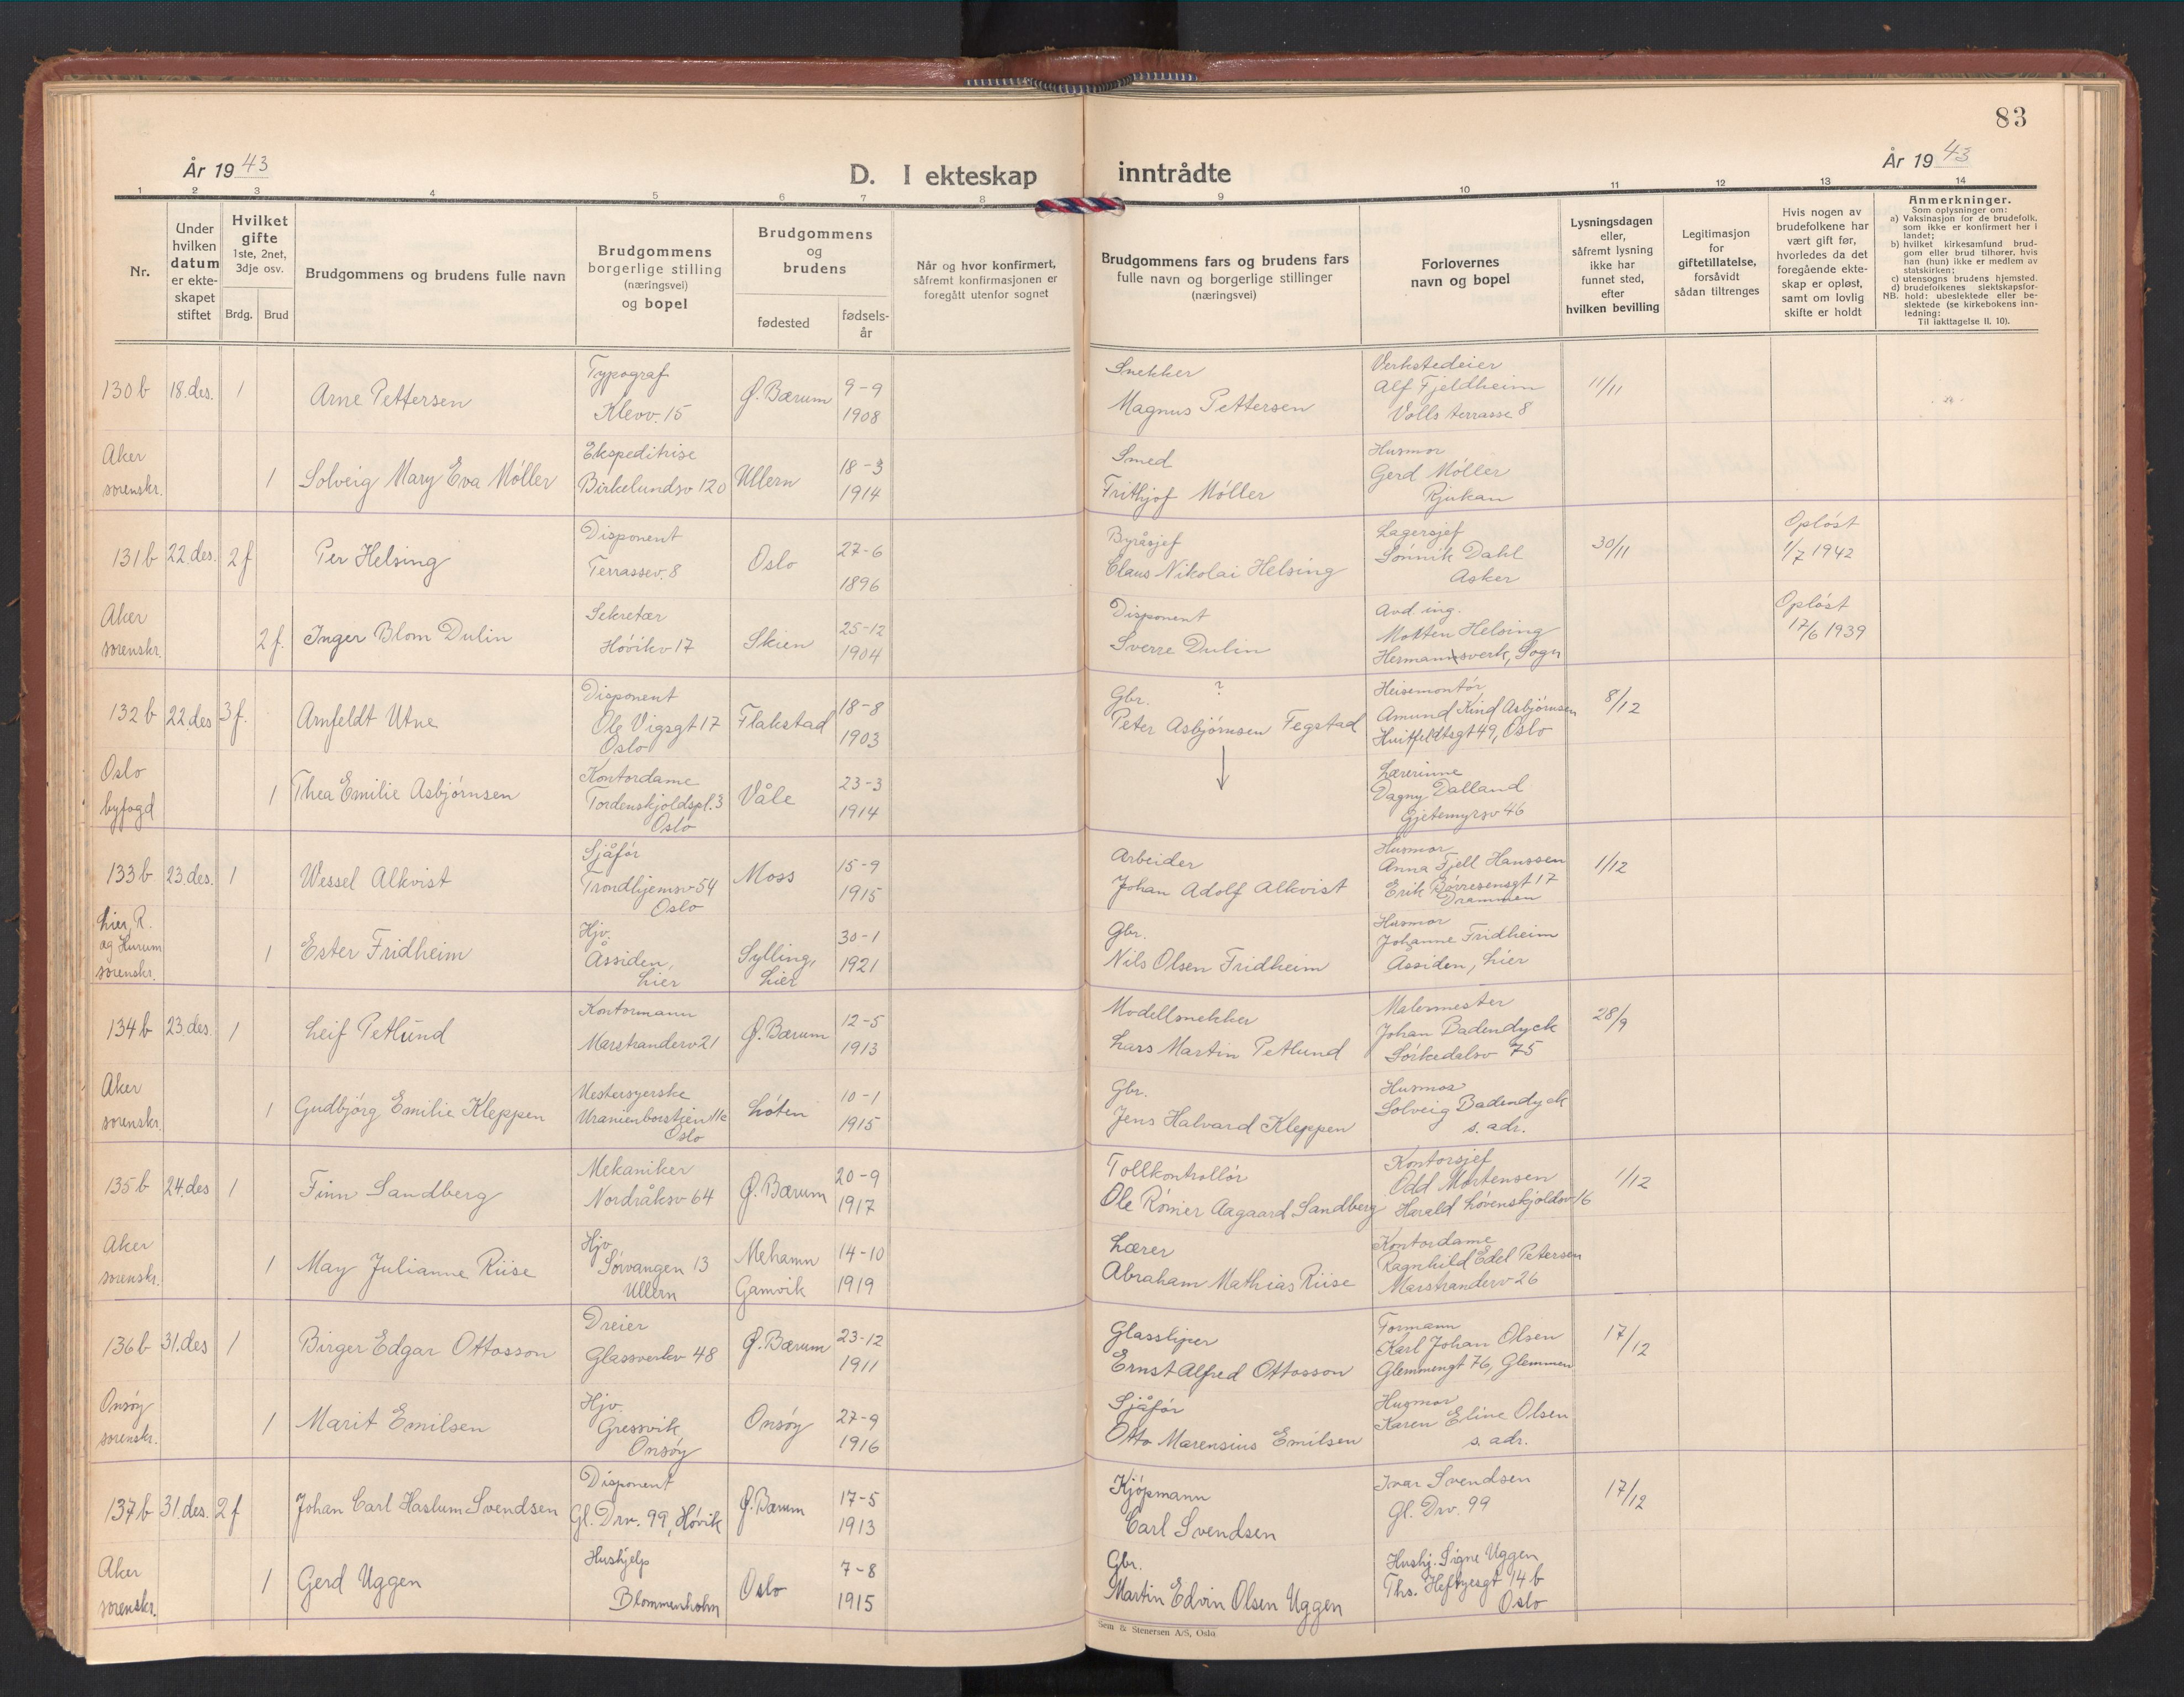 83
År 1943
D. I ekteskap inntrådte
År 1943
1 2 3 4 5 6 7 8 9 10 11 12 13 14
Nr.
Under hvilken datum er ekte-skapet stiftet
Hvilket gifte
1ste, 2net, 3dje osv.
Brdg. Brud
Brudgommens og brudens fulle navn
Brudgommens borgerlige stilling (næringsvei) og bopel
Brudgommens og brudens
fødested
fødsels-år
Når og hvor konfirmert, såfremt konfirmasjonen er foregått utenfor sognet
Brudgommens fars og brudens fars fulle navn og borgerlige stillinger (næringsvei)
Forlovernes navn og bopel
Lysningsdagen eller, såfremt lysning ikke har funnet sted, efter hvilken bevilling
Legitimasjon for giftetillatelse, forsåvidt sådan tiltrenges
Hvis nogen av brudefolkene har vært gift før, hvorledes da det foregående ekte-skap er opløst, samt om lovlig skifte er holdt
Anmerkninger.
Som oplysninger om:
a) Vaksinasjon for de brudefolk, som ikke er konfirmert her i landet;
b) hvilket kirkesamfund brud-gom eller brud tilhører, hvis han (hun) ikke er medlem av statskirken;
c) utensogns brudens hjemsted.
d) brudefolkenes slektskapsfor-hold: ubeslektede eller be-slektede (se kirkebokens inn-ledning:
NB. Til iakttagelse II. 10).
130b 18.des. 1 Arne Pettersen Typograf Klevv. 15 Ø. Bærum 9-9 1908 Snekker Magnus Pettersen Verkstedeier Alf Fjeldheim Volls terrasse 8 11/11
Aker sorenskr. 1 Solveig Mary Eva Møller Ekspeditrise Birkelundsv 120 Ullern 18-3 1914 Smed Frithjof Møller Husmor Gerd Møller Rjukan
131b 22.des. 2f Per Helsing Disponent Terrassev. 8 Oslo 27-6 1896 Byråsjef Claus Nikolai Helsing Lagersjef Sønnik Dahl Asker 30/11 Opløst 1/7 1942
Aker sorenskr. 2f. Inger Blom Dulin Sekretær Høvikv 17 Skien 25-12 1904 Disponent Sverre Dulin Avd ing. Motten Helsing Hermansverk, Sogn Opløst 17/6 1939
132b 22.des 3f. Arnfeldt Utne Disponent Ole Vigsgt 17 Oslo Flakstad 18-8 1903 Gbr. ? Peter Asbjørnsen Fegstad Heisemontør Amund Kind Asbjørnsen Huitfeldtsgt 49, Oslo 8/12
Oslo byfogd 1 Thea Emilie Asbjørnsen Kontordame Tordenskjoldspl. 3 Oslo Våle 23-3 1914 ↓ Lærerinne Dagny Dalland Gjetemyrsv 46
133b 23.des. 1 Wessel Alkvist Sjåfør Trondhjemsv 54 Oslo Moss 15-9 1915 Arbeider Johan Adolf Alkvist Husmor Anna Fjell Hanssen Erik Børresensgt 17 Drammen 1/12
Lier, R. og Hurum sorenskr. 1 Ester Fridheim Hjv. Åssiden, Lier Sylling, Lier 30-1 1921 Gbr. Nils Olsen Fridheim Husmor Johanne Fridheim Assiden, Lier
134b 23.des. 1 Leif Petlund Kontormann Marstranderv 21 Ø. Bærum 12-5 1913 Modellsnekker Lars Martin Petlund Malermester Johan Badendyck Sørkedalsv 75 28/9
Aker sorenskr. 1 Gudbjørg Emilie Kleppen Oslo Løten 10-1 1915 Gbr. Jens Halvard Kleppen Husmor Solveig Badendyck s. adr.
135b 24.des 1 Finn Sandberg Mekaniker Nordråksv 64 Ø. Bærum 20-9 1917 Tollkontrollør Ole Rømer Aagaard Sandberg Kontorsjef Odd Mortensen Harald Løvenskjoldsv 16 1/12
Aker sorenskr. 1 May Julianne Riise Hjv Sørvangen 13 Ullern Mehamn Gamvik 14-10 1919 Lærer Abraham Mathias Riise Kontordame Ragnhild Edel Petersen Marstranderv 26
136b 31.des 1 Birger Edgar Ottosson Dreier Glassverkv 48 Ø. Bærum 23-12 1911 Glassliper Ernst Alfred Ottosson Formann Karl Johan Olsen Glemmengt 76, Glemmen 17/12
Onsøy sorenskr. 1 Marit Emilsen Hjv. Gressvik Onsøy Onsøy 27-9 1916 Sjåfør Otto Marensius Emilsen Husmor Karen Eline Olsen s. adr.
137b 31.des. 2f Johan Carl Haslum Svendsen Disponent Gl. Drv. 99, Høvik Ø. Bærum 17-5 1913 Kjøpmann Carl Svendsen Ivar Svendsen Gl. Drv. 99 17/12
Aker sorenskr. 1 Gerd Uggen Hushjelp Blommenholm Oslo 7-8 1915 Gbr. Martin Edvin Olsen Uggen Hushj. Signe Uggen Ths. Heftyesgt 14 b Oslo
Sem & Stenersen A/S, Oslo